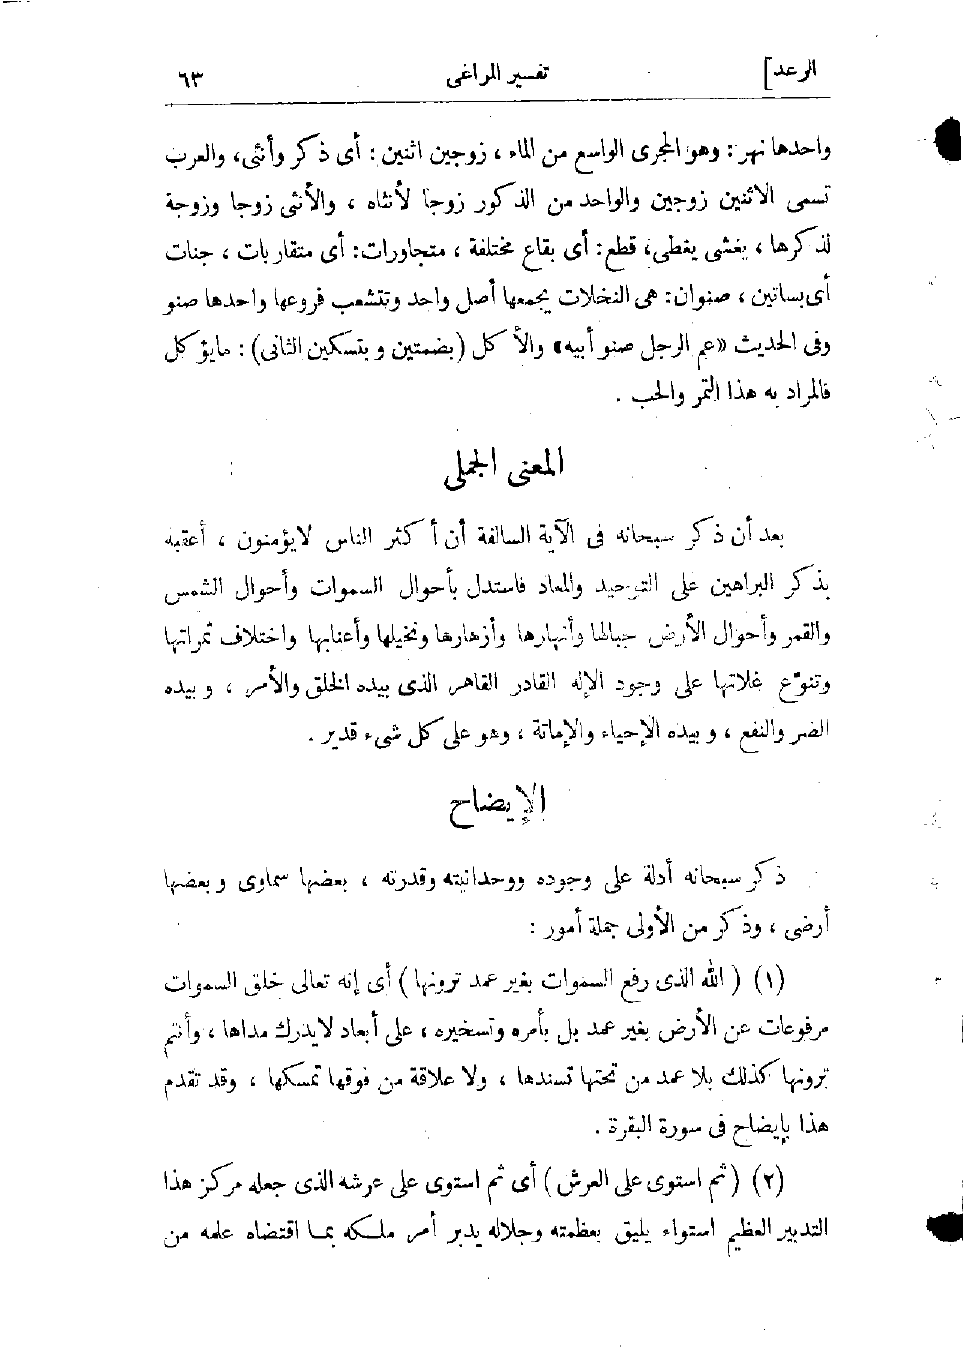 الرعد]
تفسير المراغى
٦٣
واحدها نهر : وهو المجرى الواسع من الماء ، زوجين اثنين : أى ذكر وأنثى، والعرب
تسمى الاثنين زوجين والواحد من الذكور زوجا لأنثاه ، والأنثى زوجا وزوجة
لذكرها ، يغشى يغطى، قطع : أى بقاع مختلفة ، متجاورات: أى متقاربات ، جنات
أى بساتين ، صنوان: هى النخلات يجمعها أصل واحد وتتشعب فروعها واحدها صنو
وفى الحديث «عم الرجل صنو أبيه» والأكل (بضمتين وبتسكين الثانى) : مايؤكل
فالمراد به هذا الثمر والحب .
المعنى الجملى
بعد أن ذكر سبحانه فى الآية السالفة أن أكثر الناس لايؤمنون ، أعقبه
بذكر البراهين على التوحيد والمعاد فاستدل بأحوال السموات وأحوال الشمس
والقمر وأحوال الأرض جبالها وأنهارها وأزهارها ونخيلها وأعنابها واختلاف ثمراتها
وتنوّع غلاتها على وجود الإله القادر القاهر الذى بيده الخلق والأمر ، وبيده
الضر والنفع ، وبيده الإحياء والإماتة ، وهو على كل شىء قدير .
الإيضاح
ذكر سبحانه أدلة على وجوده ووحدانيته وقدرته ، بعضها سماوى وبعضها
أرضى ، وذكر من الأولى جملة أمور :
(١) (الله الذى رفع السموات بغير عمد ترونها) أى إنه تعالى خلق السموات
مرفوعات عن الأرض بغير عمد بل بأمره وتسخيره ، على أبعاد لايدرك مداها ، وأنتم
ترونها كذلك بلا عمد من تحتها تسندها ، ولا علاقة من فوقها تمسكها ، وقد تقدم
هذا بإيضاح فى سورة البقرة .
(٢) (ثم استوى على العرش) أى ثم استوى على عرشه الذى جعله مركز هذا
التدبير العظيم استواء يليق بعظمته وجلاله يدبر أمر ملكه بما اقتضاه علمه من